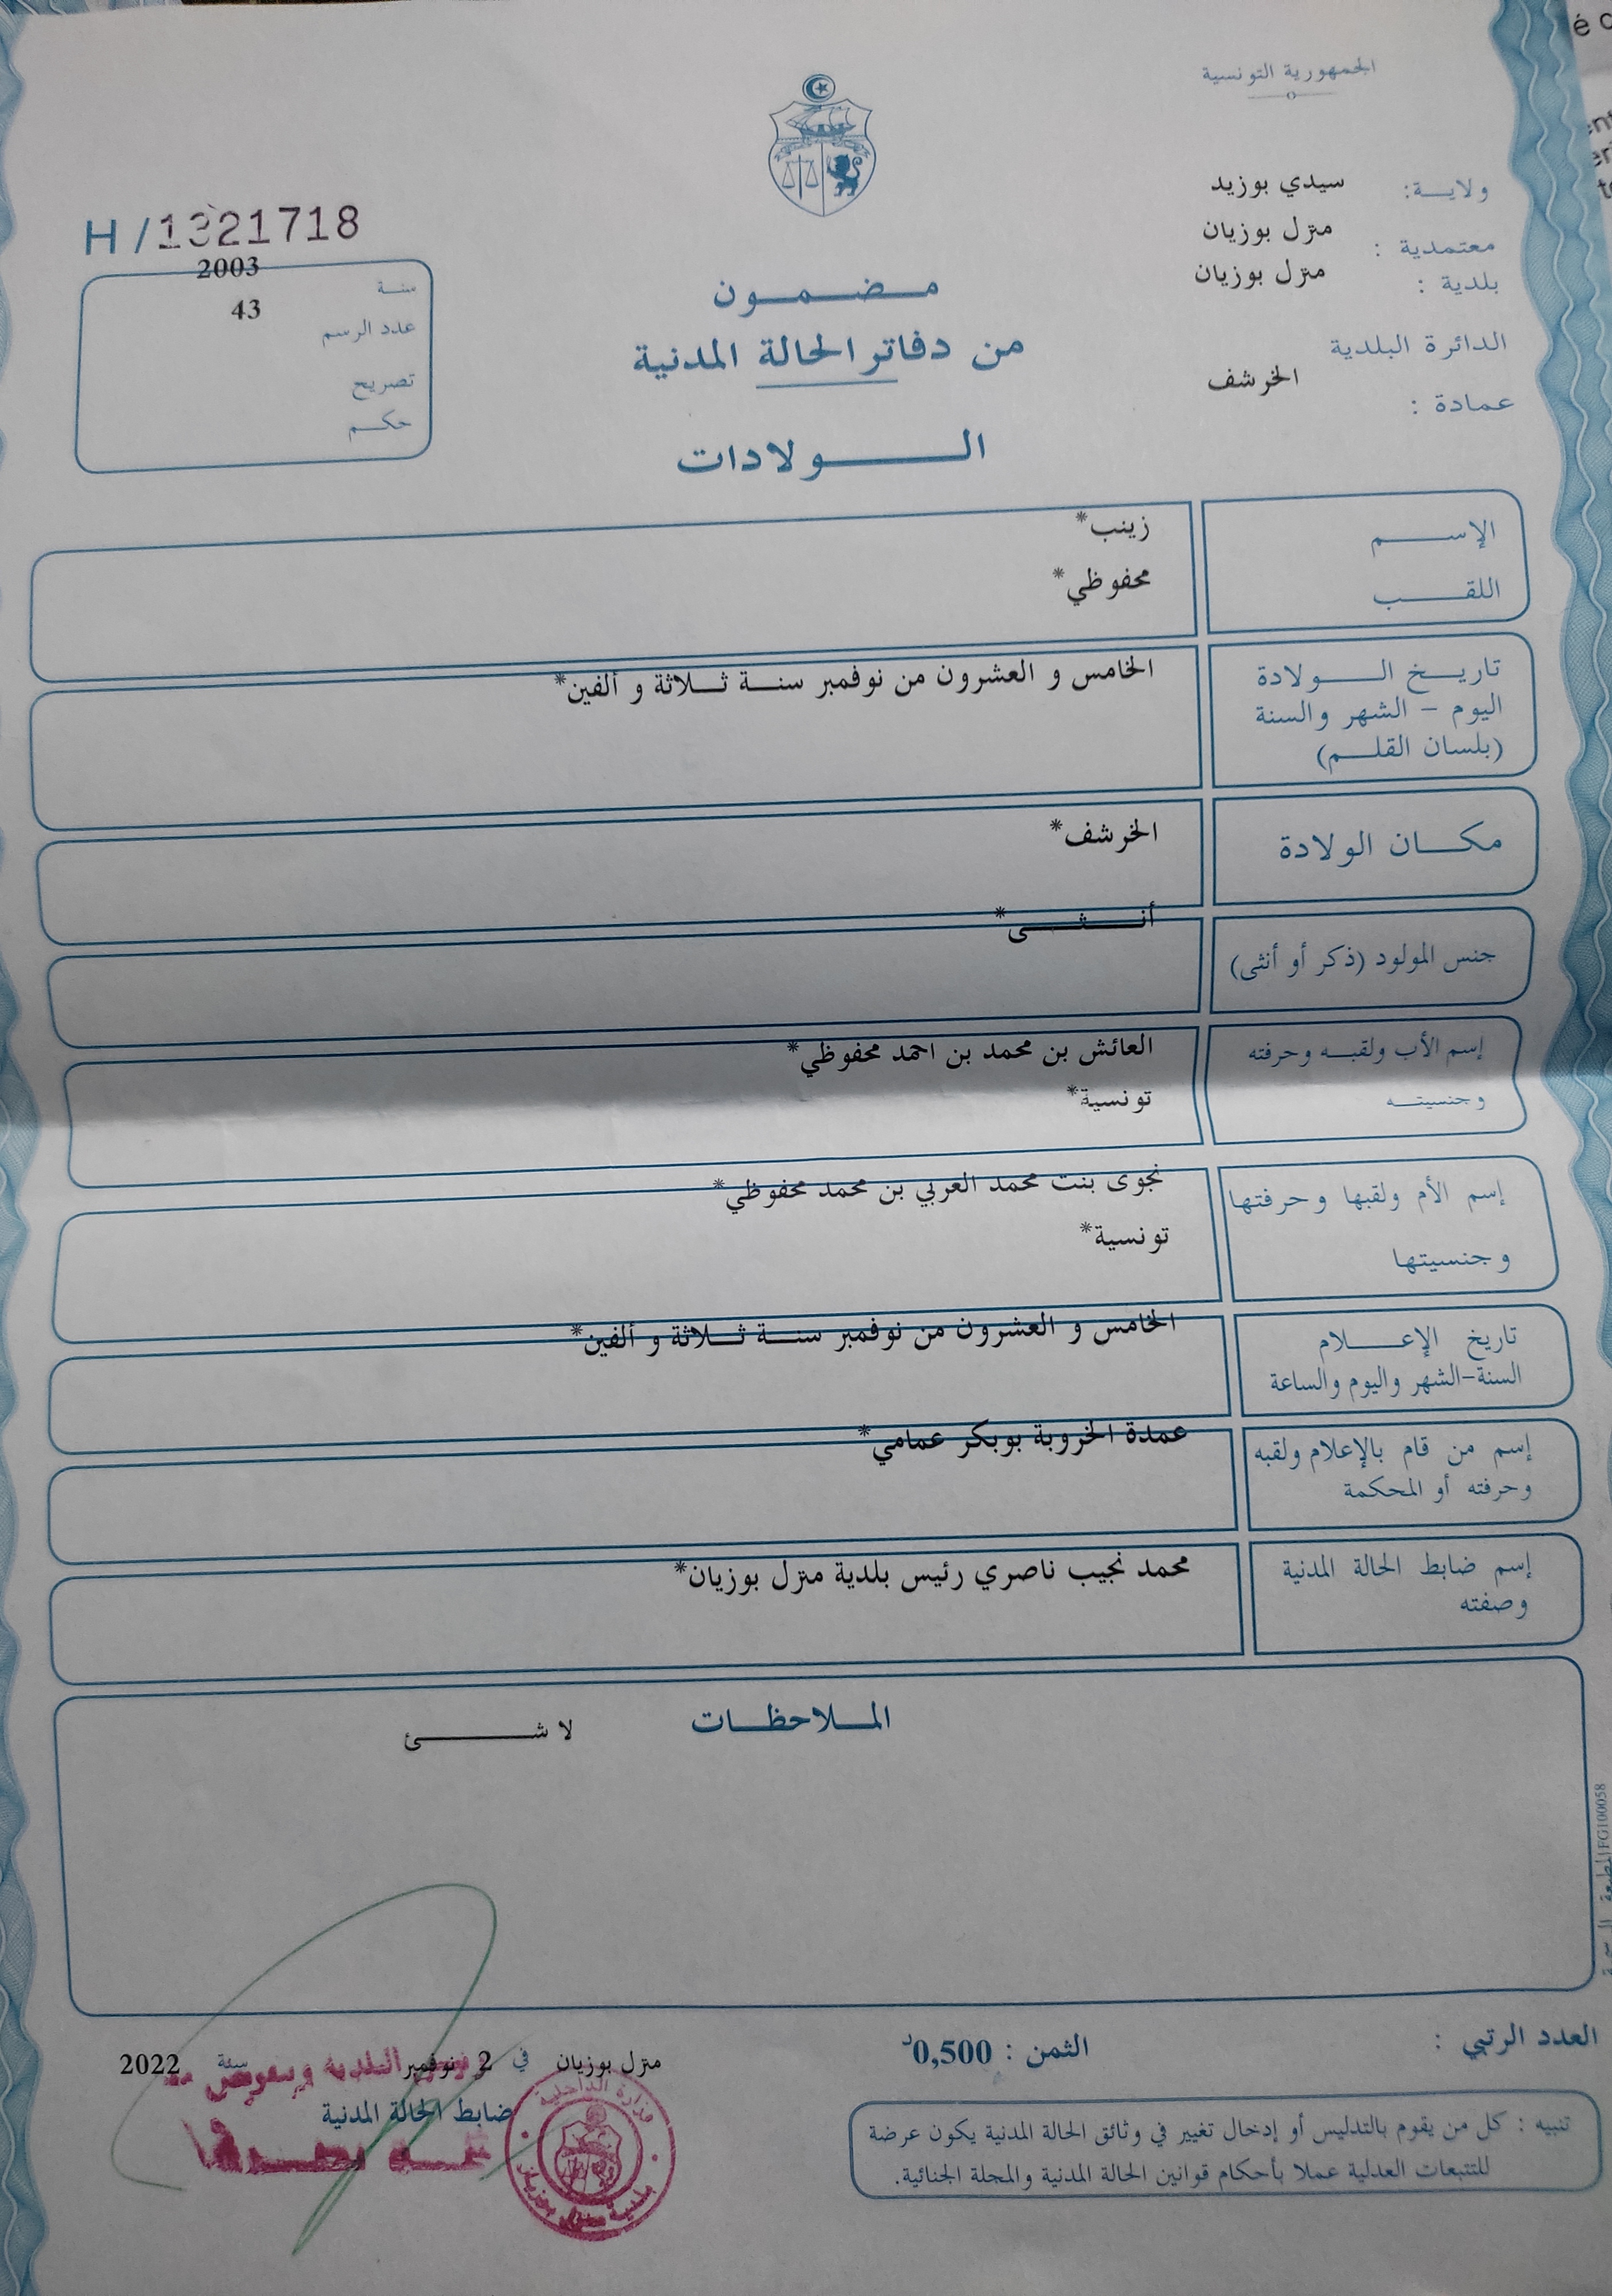 الجمهورية التونسية
ولايـــة: سيدي بوزيد
معتمدية : منزل بوزيان
بلدية : منزل بوزيان
الدائرة البلدية
عمادة : الخرشف
H/1321718
سنـة 2003
عدد الرسم 43
تصريح
حكــم
مــضــمــون
من دفاتر الحالة المدنية
الــــولادات
الإســـم زينب*
اللقـــب محفوظي*
تاريــخ الـــولادة
اليوم - الشهر والسنة
(بلسان القلـــم)
الخامس و العشرون من نوفمبر سنــة ثــلاثة و ألفين*
مكـــان الولادة الخرشف*
جنس المولود (ذكر أو أنثى) أنـــثـــى*
إسم الأب ولقبــه وحرفته العائش بن محمد بن احمد محفوظي*
وجنسيتــه تونسية*
إسم الأم ولقبها وحرفتها نجوى بنت محمد العربي بن محمد محفوظي*
وجنسيتها تونسية*
تاريخ الإعــــلام
السنة-الشهر واليوم والساعة
الخامس و العشرون من نوفمبر سنــة ثــلاثة و ألفين*
إسم من قام بالإعلام ولقبه
وحرفته أو المحكمة
عمدة الخروبة بوبكر عمامي*
إسم ضابط الحالة المدنية
وصفته
محمد نجيب ناصري رئيس بلدية منزل بوزيان*
المــلاحظــات
لا شـــــئ
FG100058
العدد الرتبي :
الثمن : 0,500د
منزل بوزيان في 2 نوفمبر سنة 2022
ضابط الحالة المدنية
وزارة الداخلية
بلدية منزل بوزيان
تنبيه : كل من يقوم بالتدليس أو إدخال تغيير في وثائق الحالة المدنية يكون عرضة
للتتبعات العدلية عملا بأحكام قوانين الحالة المدنية والمجلة الجنائية.